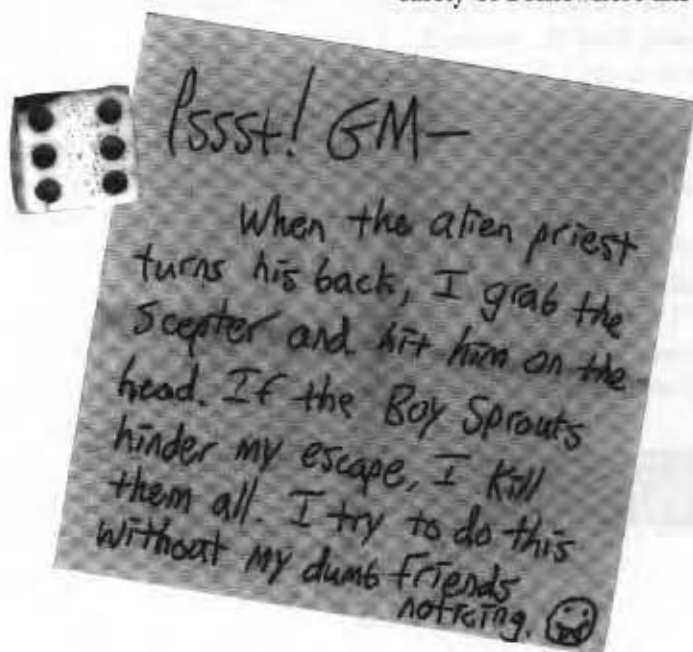 Pssst! GM—
When the alien priest
turns his back, I grab the
Scepter and hit him on the
head. If the Boy Sprouts
hinder my escape, I kill
them all. I try to do this
without my dumb friends
noticing.